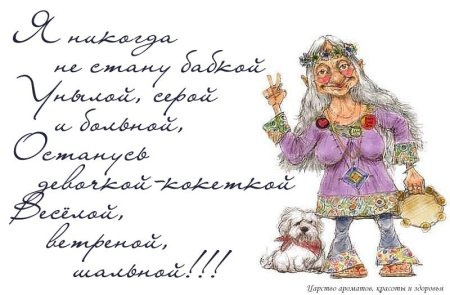 Я никогда
не стану бабкой
Унылой, серой
и больной,
Останусь
девочкой-кокеткой
Весёлой,
ветреной,
шальной!!!
Царство ароматов, красоты и здоровья